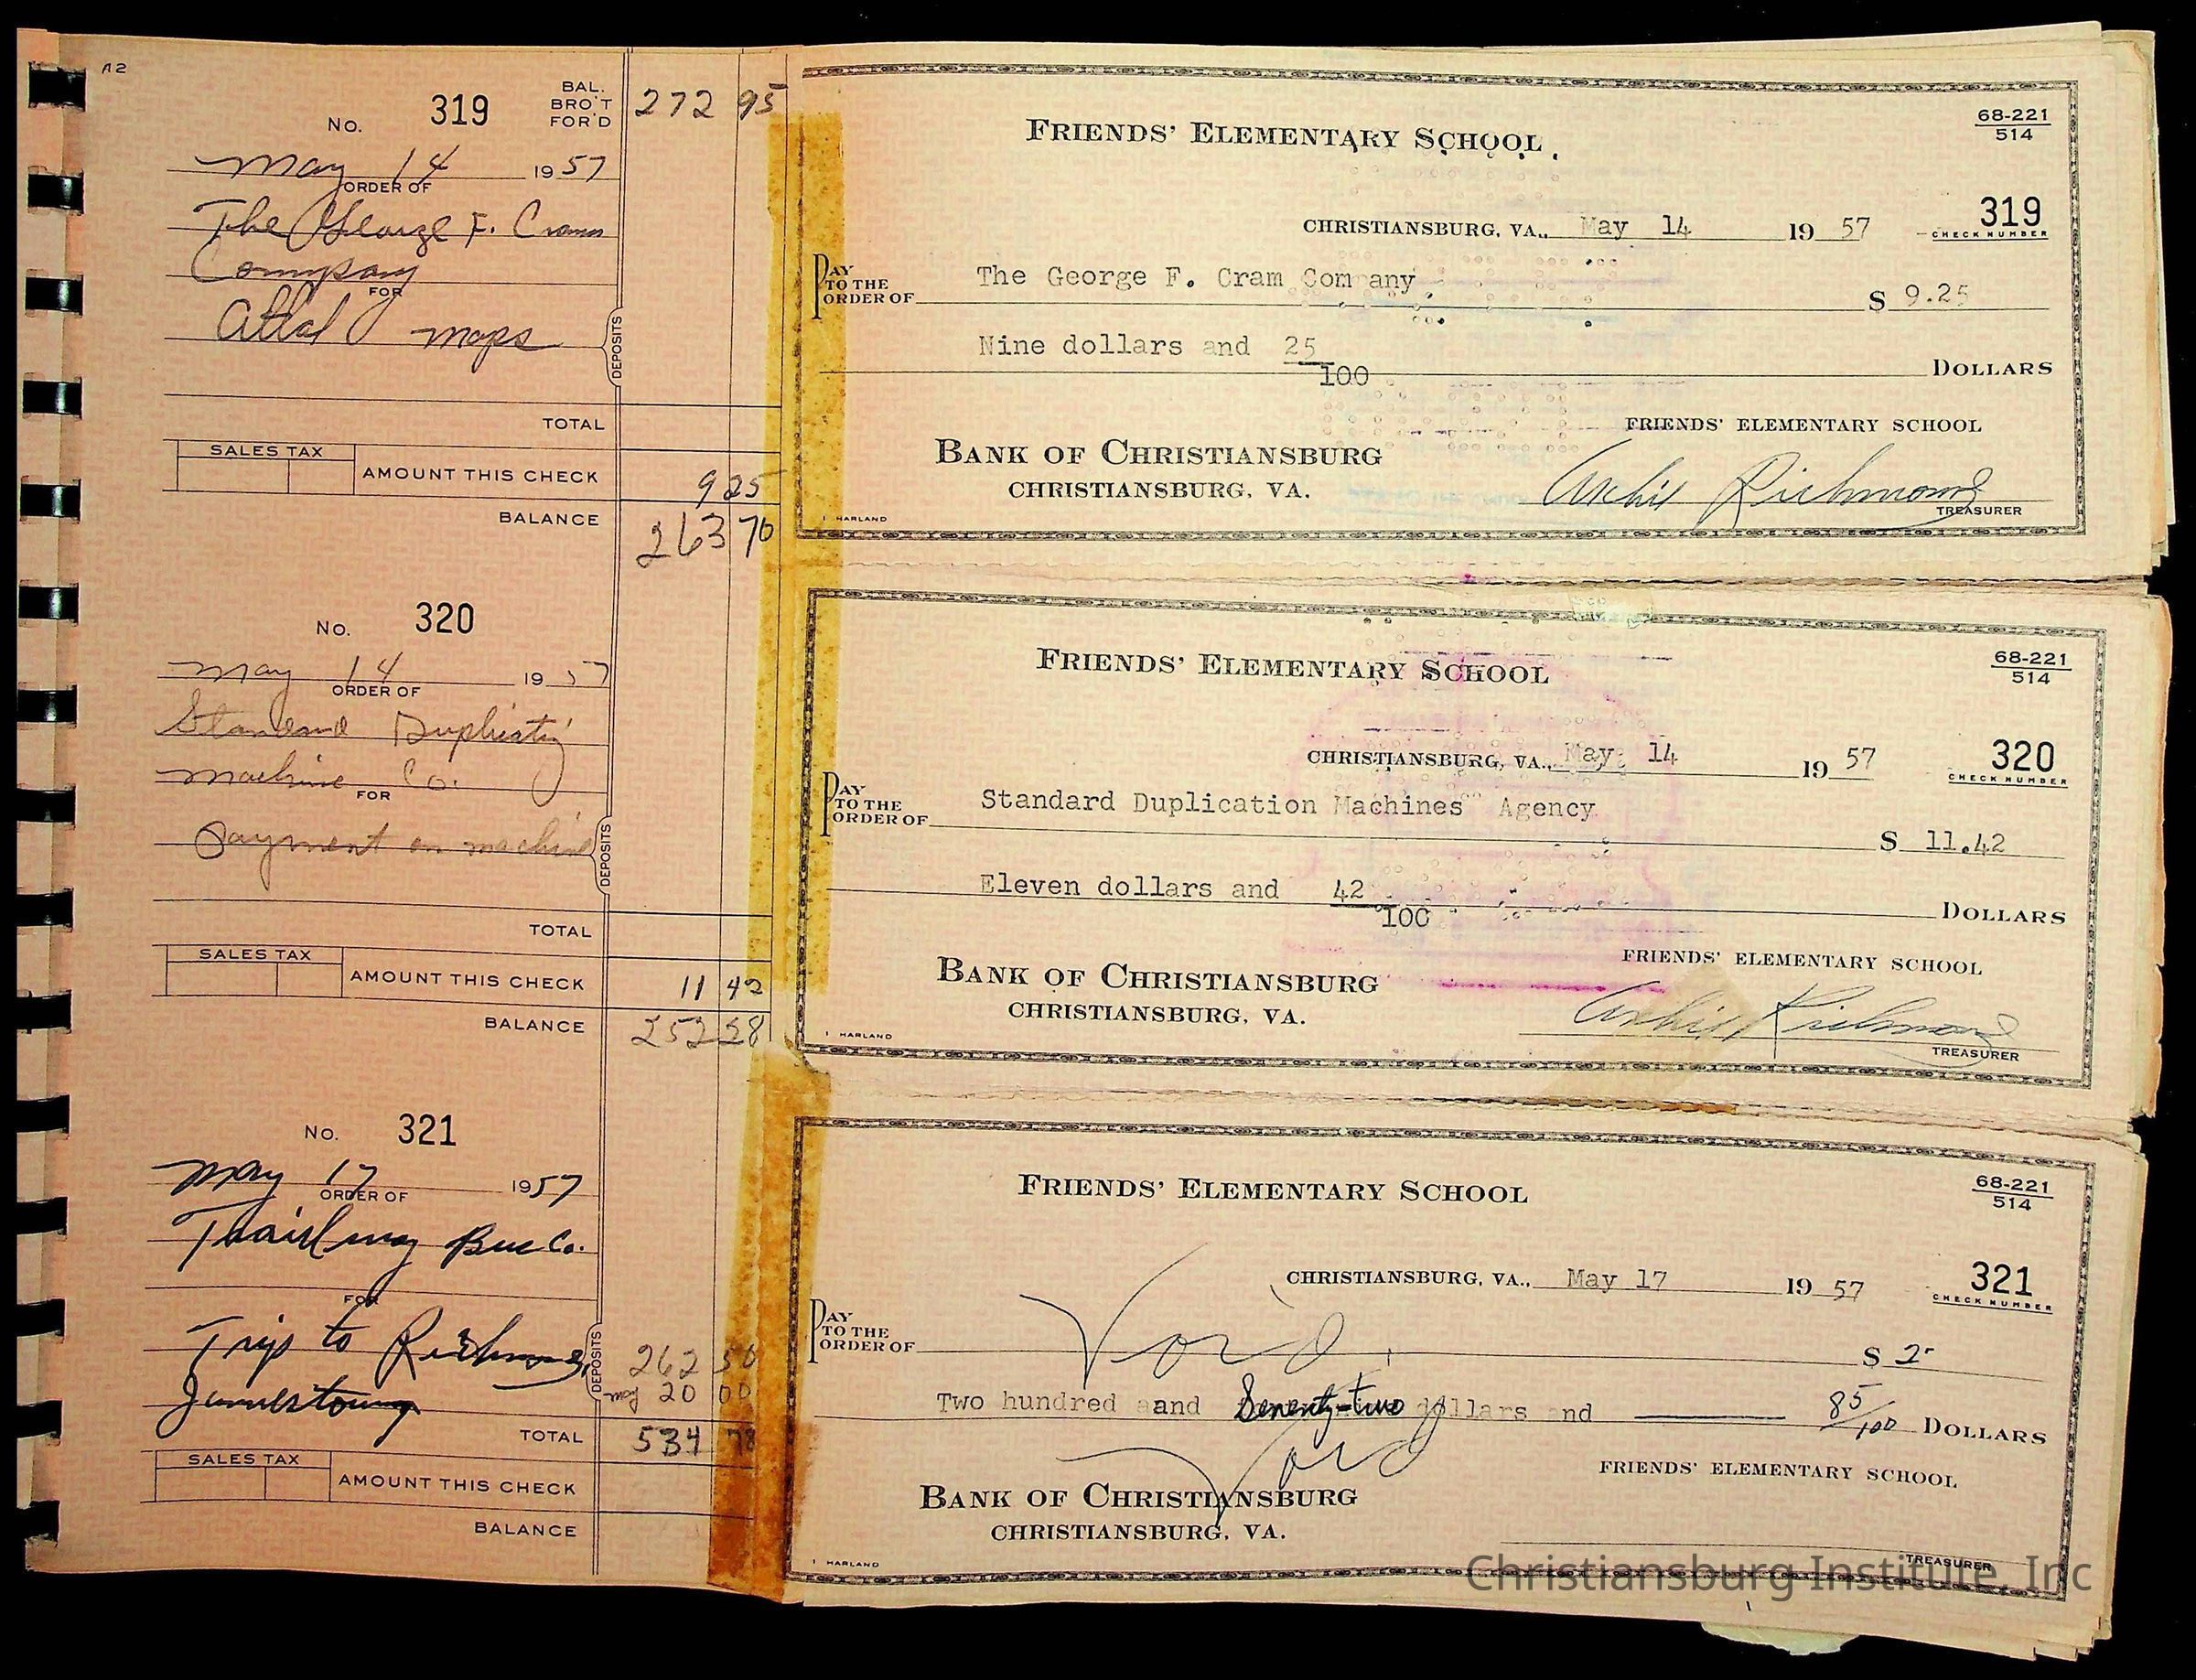 A2
No. 319
BAL.
BRO'T
FOR'D
272 95
May 14 1957
ORDER OF
The George F. Cram
Company
FOR
Atlas maps
DEPOSITS
TOTAL
SALES TAX
AMOUNT THIS CHECK
9 25
BALANCE
263 70
FRIENDS' ELEMENTARY SCHOOL
68-221
514
CHRISTIANSBURG, VA., May 14 19 57
319
CHECK NUMBER
PAY
TO THE
ORDER OF
The George F. Cram Company
$ 9.25
Nine dollars and 25
100
DOLLARS
FRIENDS' ELEMENTARY SCHOOL
BANK OF CHRISTIANSBURG
CHRISTIANSBURG, VA.
Archie Richmond
TREASURER
HARLAND
No. 320
May 14 1957
ORDER OF
Standard Duplicating
Machine Co.
FOR
Payment on machine
DEPOSITS
TOTAL
SALES TAX
AMOUNT THIS CHECK
11 42
BALANCE
252 28
FRIENDS' ELEMENTARY SCHOOL
68-221
514
CHRISTIANSBURG, VA., May 14 19 57
320
CHECK NUMBER
PAY
TO THE
ORDER OF
Standard Duplication Machines Agency
$ 11.42
Eleven dollars and 42
100
DOLLARS
FRIENDS' ELEMENTARY SCHOOL
BANK OF CHRISTIANSBURG
CHRISTIANSBURG, VA.
Archie Richmond
TREASURER
HARLAND
No. 321
May 17 1957
ORDER OF
Bus Co.
FOR
Trip to Richmond,
Jamestown
DEPOSITS
262 50
20 00
TOTAL
534 78
SALES TAX
AMOUNT THIS CHECK
BALANCE
FRIENDS' ELEMENTARY SCHOOL
68-221
514
CHRISTIANSBURG, VA., May 17 19 57
321
CHECK NUMBER
PAY
TO THE
ORDER OF
Void
$ 2
Two hundred aand Seventy-two dollars and 85/100 DOLLARS
Void
FRIENDS' ELEMENTARY SCHOOL
BANK OF CHRISTIANSBURG
CHRISTIANSBURG, VA.
TREASURER
HARLAND
Christiansburg Institute, Inc